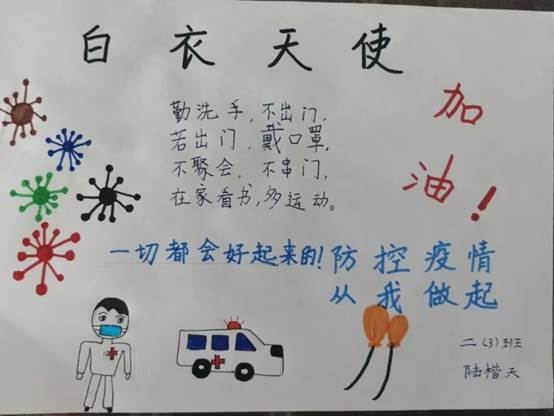 白衣天使
勤洗手,不出门,
若出门,戴口罩,
不聚会,不串门,
在家看书,多运动。
加
油!
一切都会好起来的!
防控疫情
从我做起
二(3)班
陆楷天